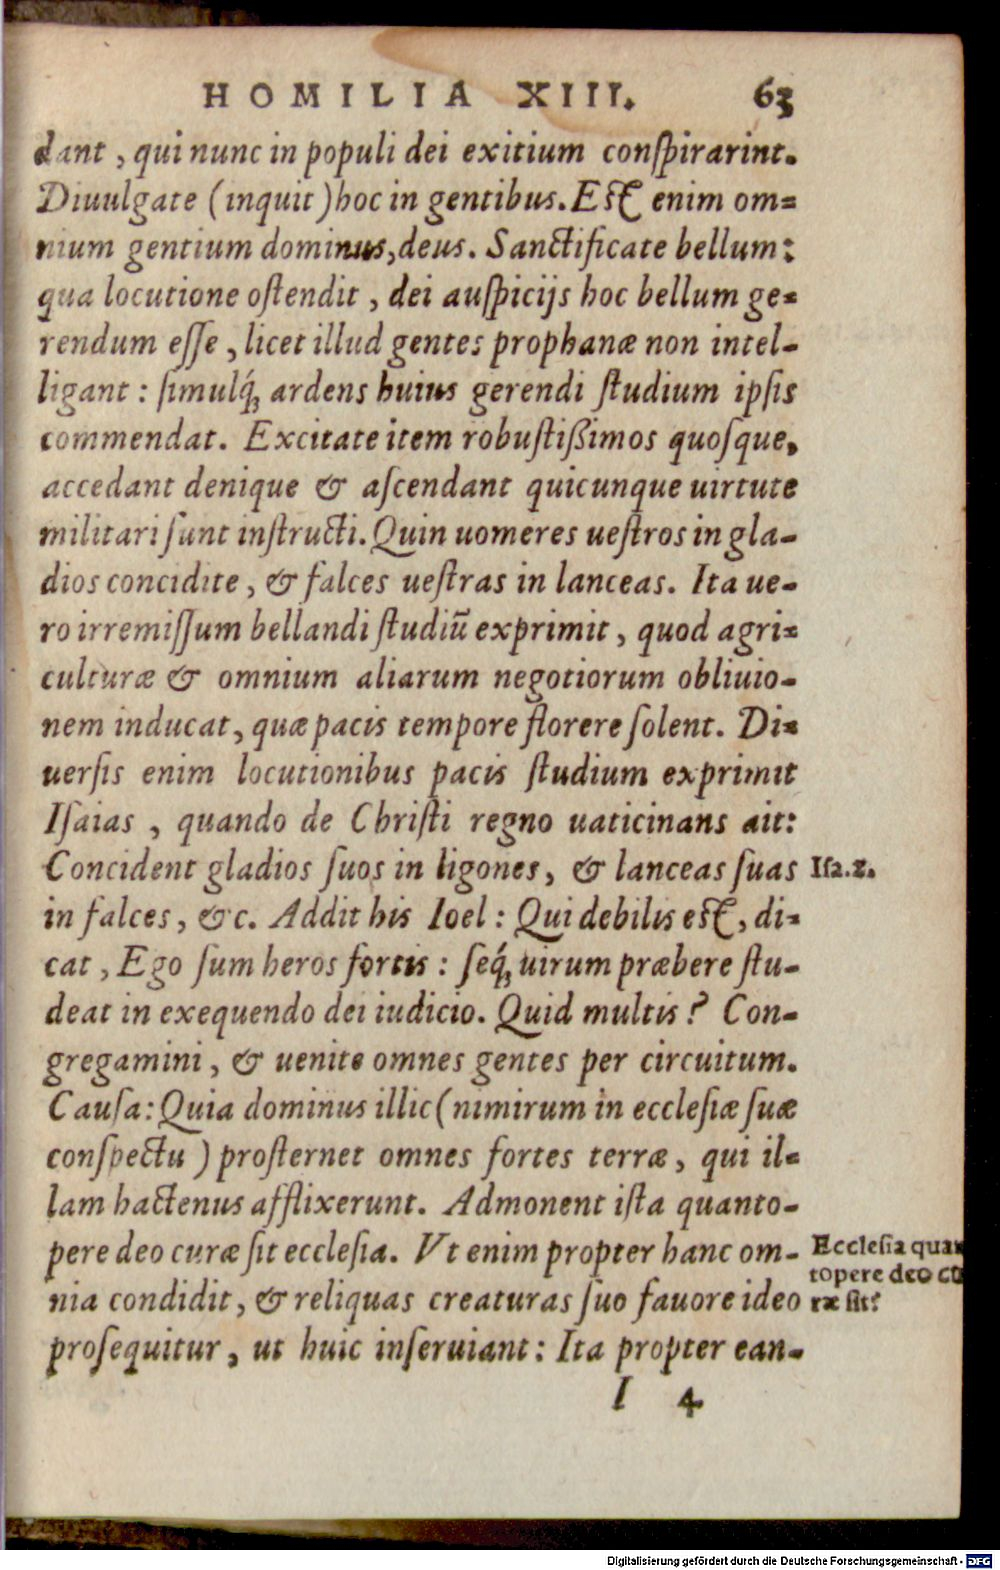 HOMILIA XIII. 63
dant, qui nunc in populi dei exitium conſpirarint.
Diuulgate (inquit) hoc in gentibus. Eſt enim om-
nium gentium dominus, deus. Sanctificate bellum:
qua locutione oſtendit, dei auſpicijs hoc bellum ge-
rendum eſſe, licet illud gentes prophanæ non intel-
ligant: ſimulq́; ardens huius gerendi ſtudium ipſis
commendat. Excitate item robuſtißimos quoſque,
accedant denique & aſcendant quicunque uirtute
militari ſunt inſtructi. Quin uomeres ueſtros in gla-
dios concidite, & falces ueſtras in lanceas. Ita ue-
ro irremiſſum bellandi ſtudiū exprimit, quod agri-
culturæ & omnium aliarum negotiorum obliuio-
nem inducat, quæ pacis tempore florere ſolent. Di-
uerſis enim locutionibus pacis ſtudium exprimit
Iſaias, quando de Chriſti regno uaticinans ait:
Concident gladios ſuos in ligones, & lanceas ſuas
Iſa.2.
in falces, &c. Addit his Ioel: Qui debilis eſt, di-
cat, Ego ſum heros fortis: ſeq́; uirum præbere ſtu-
deat in exequendo dei iudicio. Quid multis? Con-
gregamini, & uenite omnes gentes per circuitum.
Cauſa: Quia dominus illic (nimirum in eccleſiæ ſuæ
conſpectu) proſternet omnes fortes terræ, qui il-
lam hactenus afflixerunt. Admonent iſta quanto-
pere deo curæ ſit eccleſia. Vt enim propter hanc om-
nia condidit, & reliquas creaturas ſuo fauore ideo
proſequitur, ut huic inſeruiant: Ita propter ean-
Eccleſia quan
topere deo cu
ræ ſit?
I 4
Digitalisierung gefördert durch die Deutsche Forschungsgemeinschaft - DFG